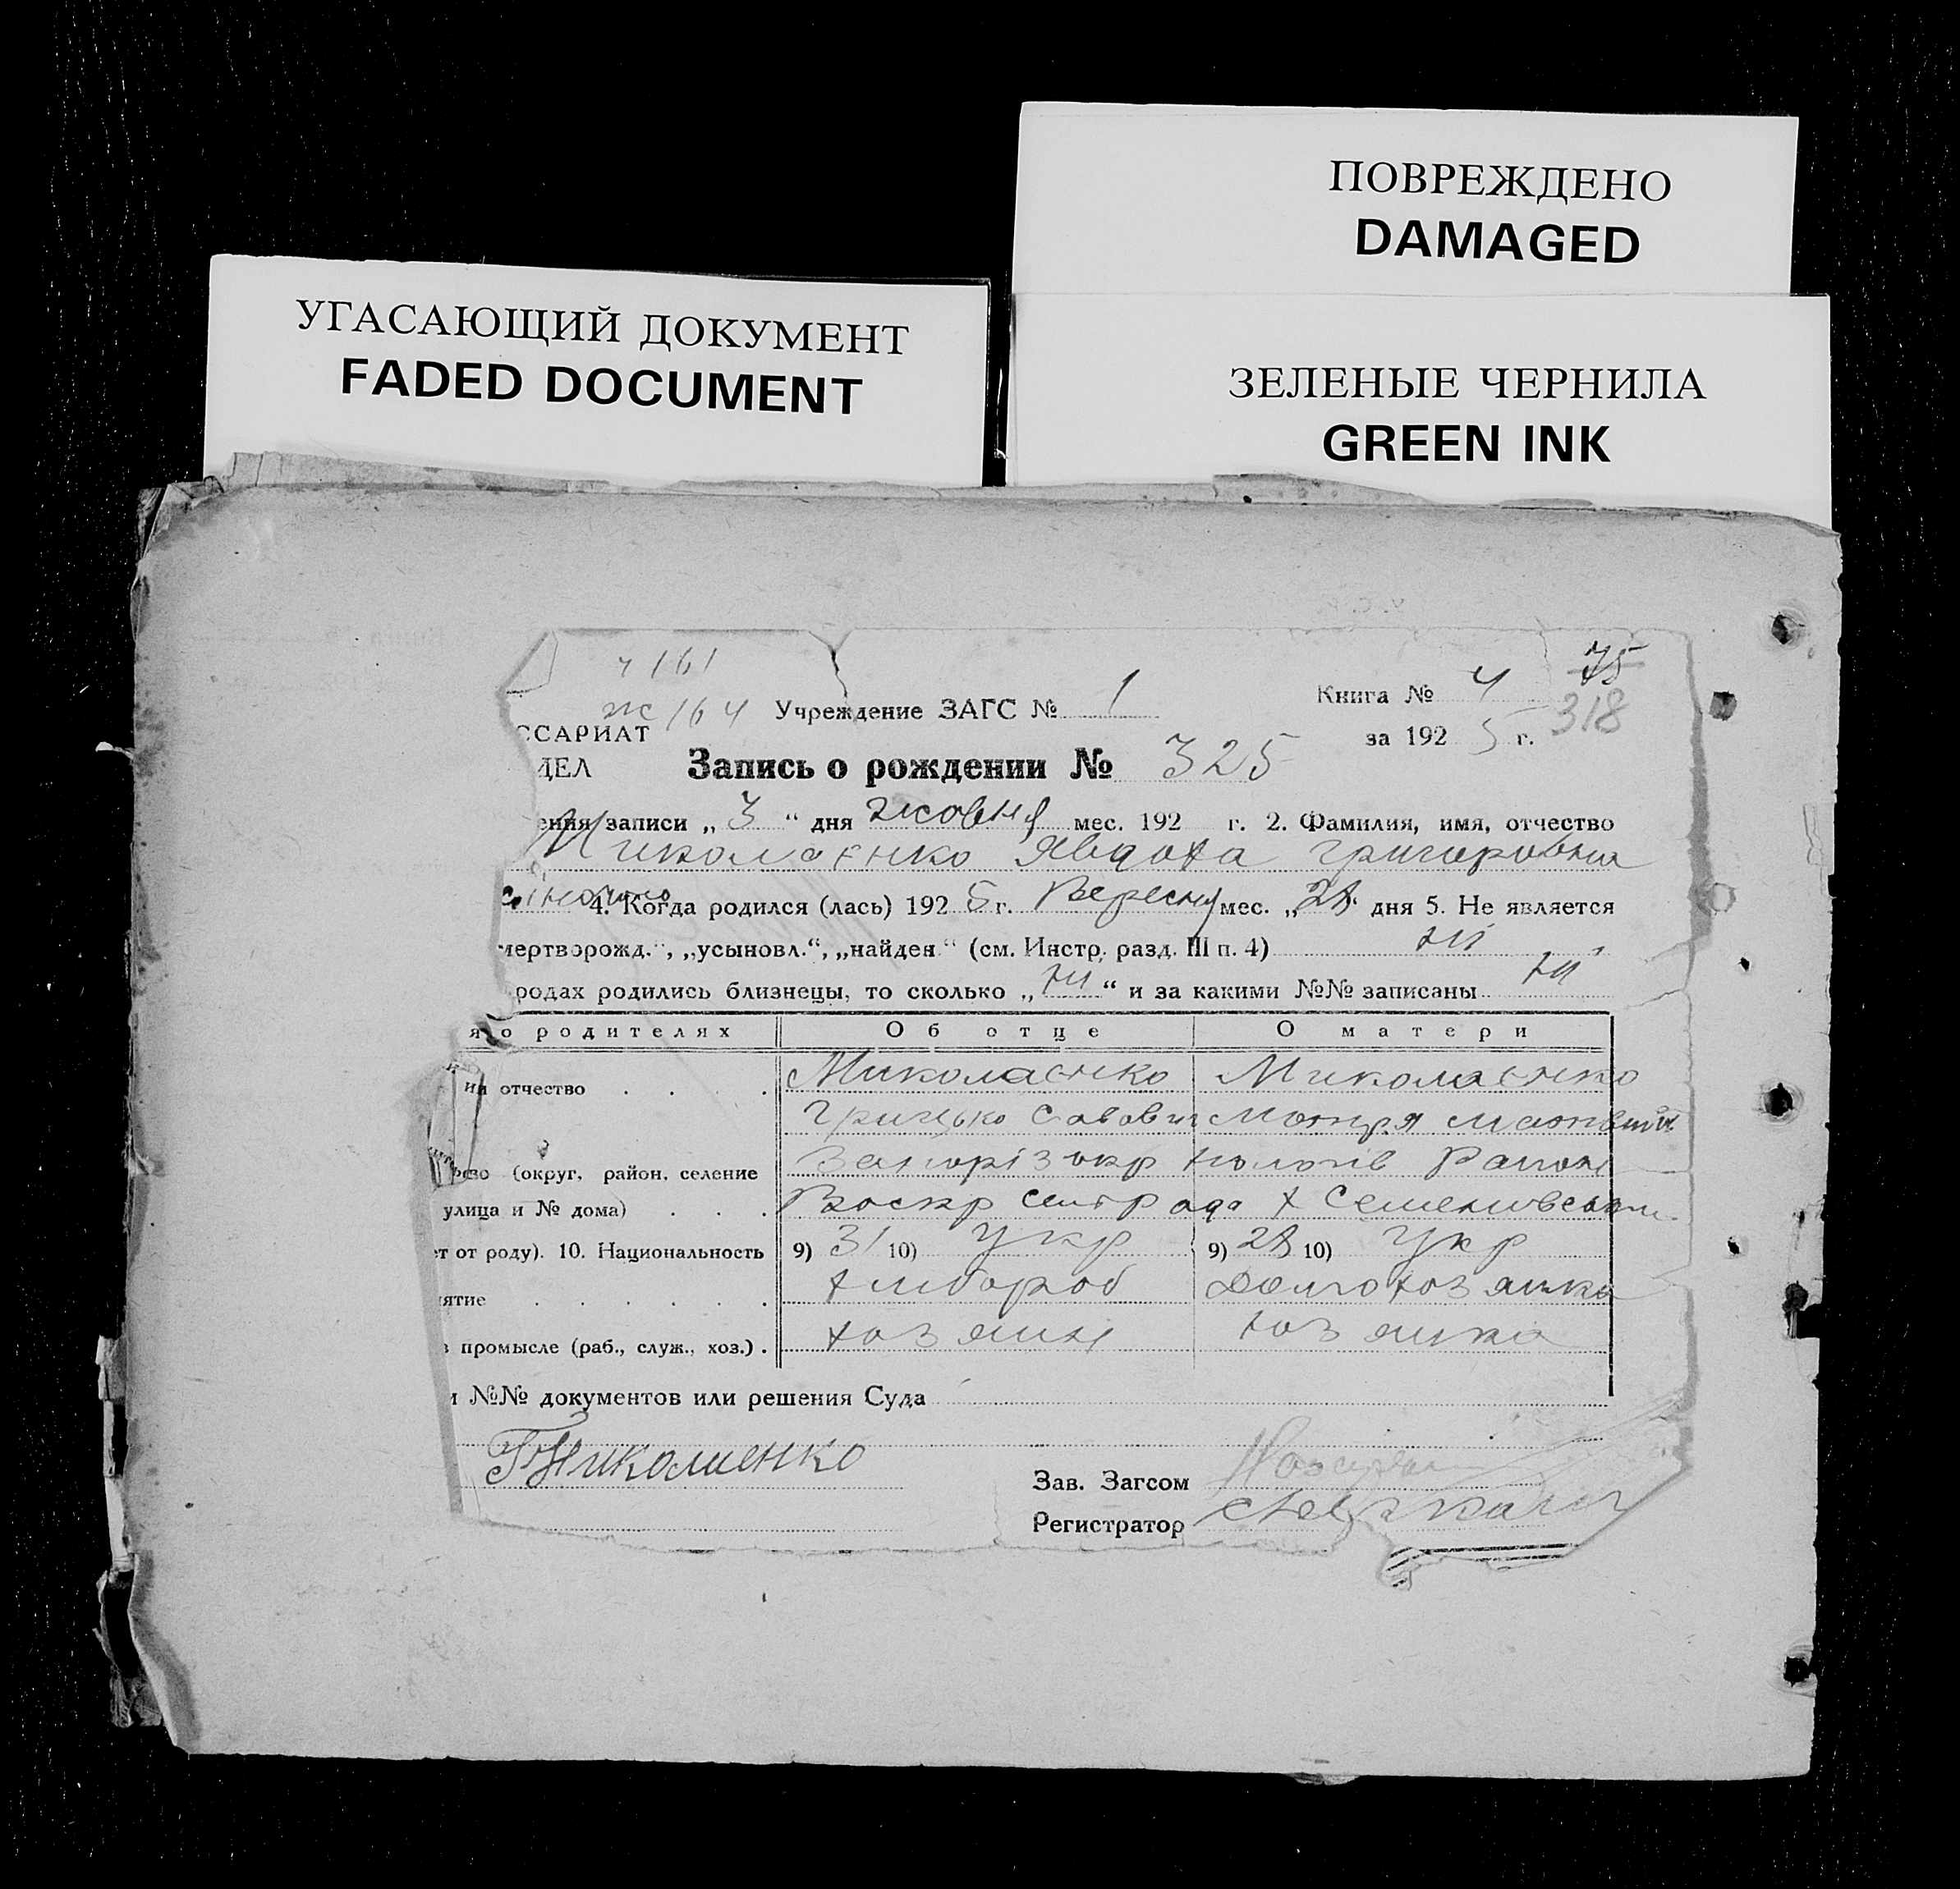 ПОВРЕЖДЕНО
DAMAGED
УГАСАЮЩИЙ ДОКУМЕНТ
FADED DOCUMENT
ЗЕЛЕНЫЕ ЧЕРНИЛА
GREEN INK
ч 161
ж 164
Учреждение ЗАГС № 1
Книга № 4
75
318
ССАРИАТ
за 1925 г.
ДЕЛ
Запись о рождении № 325
ения записи „ 3 “ дня жовня мес. 192 г. 2. Фамилия, имя, отчество
Миколаєнко Явдоха Григоровна
4. Когда родился (лась) 1925 г. Вересня мес. „28 дня 5. Не является
мертворожд.“, „усыновл.“, „найден“ (см. Инстр. разд. III п. 4) ні
родах родились близнецы, то сколько „ ні “ и за какими №№ записаны ні
я о родителях Об отце О матери
ия отчество Миколаєнко Миколаєнко
Грицько Савович Мотря
во (округ, район, селение Запоріз окр Пологів Район
улица и № дома) Воскр сельрада х
ет от роду). 10. Национальность 9) 31 10) Укр 9) 28 10) Укр
ятие хлібороб домохозяйка
в промысле (раб., служ., хоз.) хозяин хозяйка
и №№ документов или решения Суда
Г Николаенко
Зав. Загсом
Регистратор